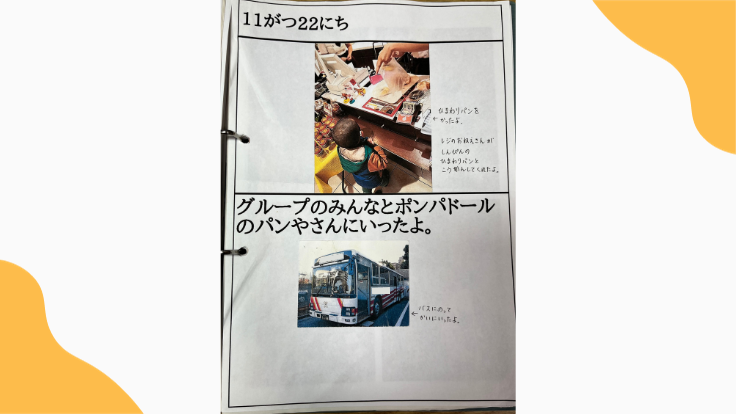 11がつ22にち
ひまわりパンを
かったよ。
レジのおねえさんが
しんぴんの
ひまわりパンと
こうかんしてくれたよ。
グループのみんなとポンパドール
のパンやさんにいったよ。
バスにのって
かいにいったよ。